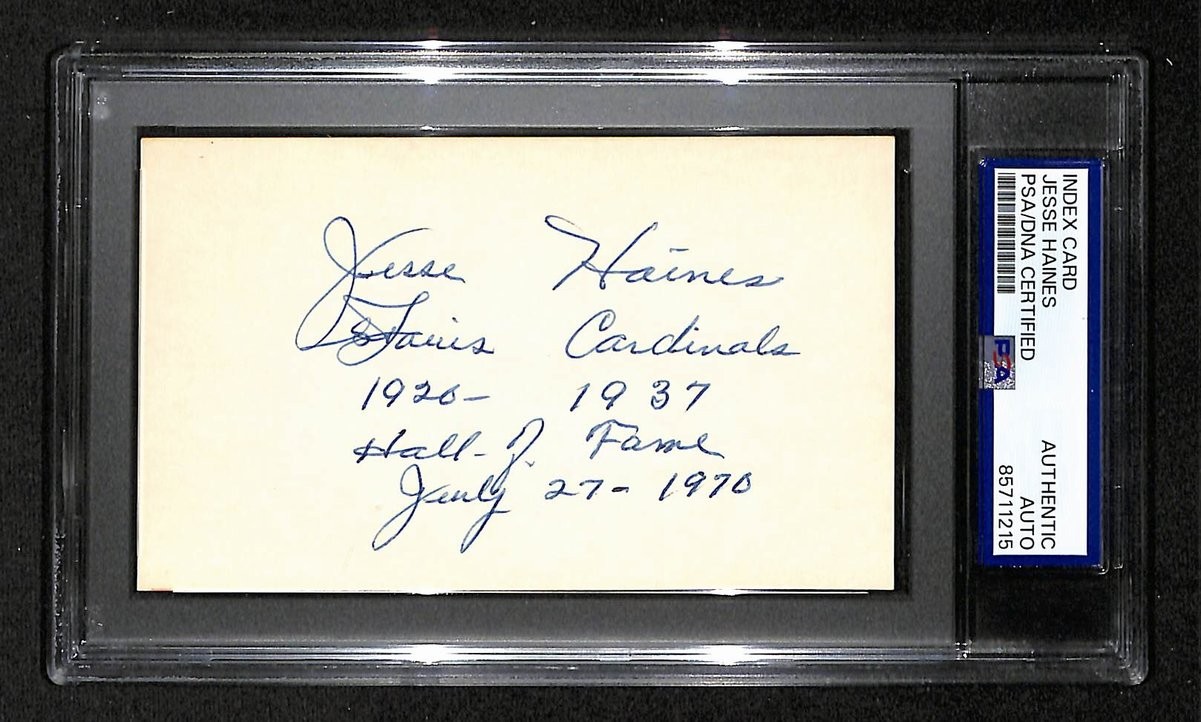 Jesse Haines
St Louis Cardinals
1920- 1937
Hall of Fame
July 27- 1970
INDEX CARD
JESSE HAINES
PSA/DNA CERTIFIED
PSA
AUTHENTIC
AUTO
85711215